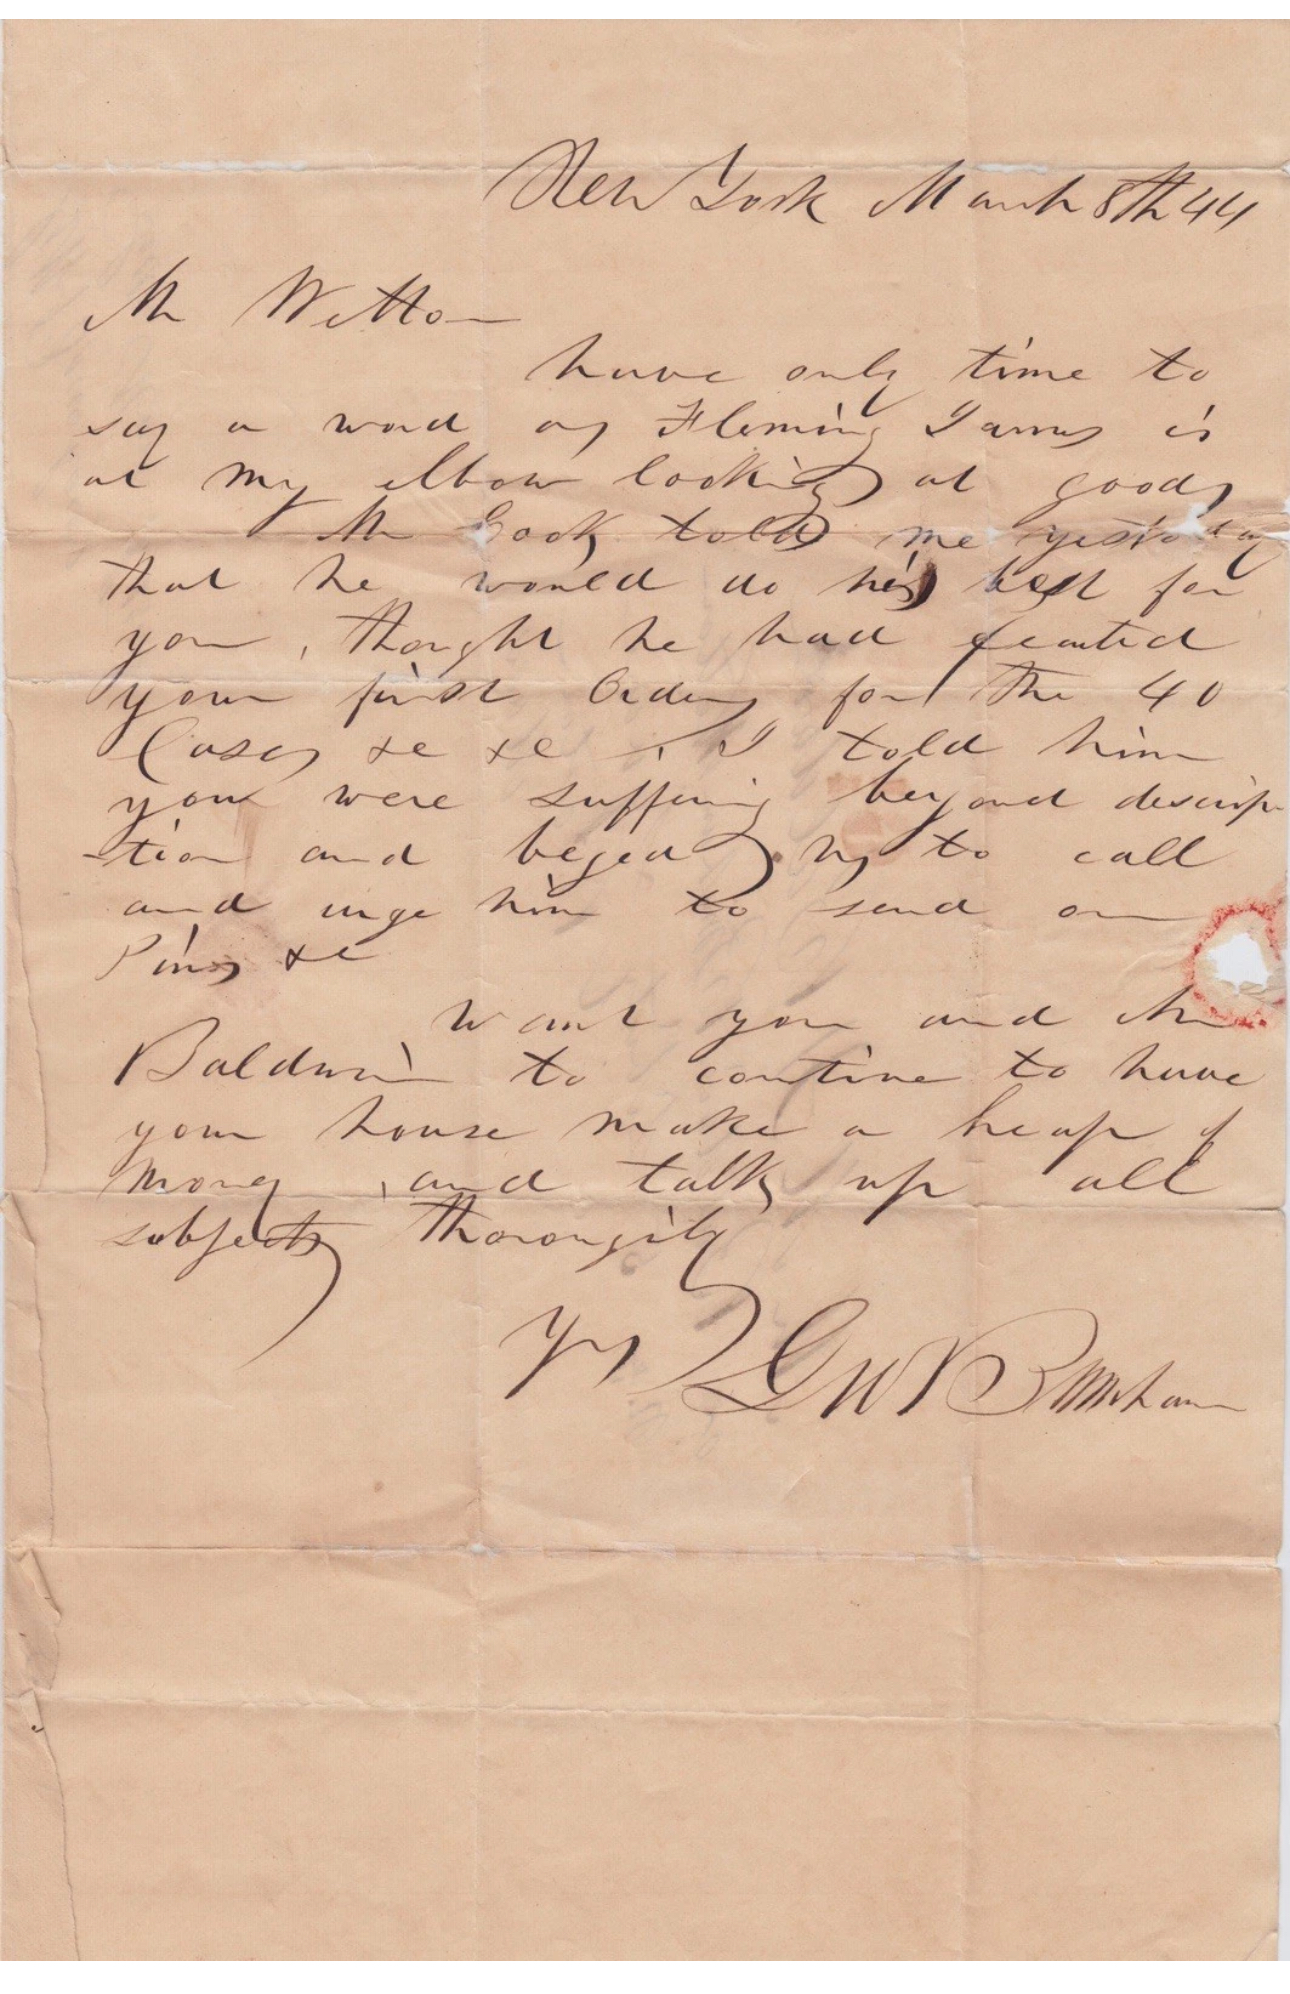 New York March 8th 44
Mr Wetto
have only time to
say a word as Fleming James is
at my elbow looking at goods
Mr told me yesterday
that he would do his best for
you, thought he had
your first Orders for the 40
Cases &c &c, I told him
you were suffering beyond descrip
-tion and beged to call
and urge him to send on
Pins &c
Want you and Mr
Baldwin to contine to have
your house make a heap of
money, and talk up all
subjects thoroughly
Yrs G W B